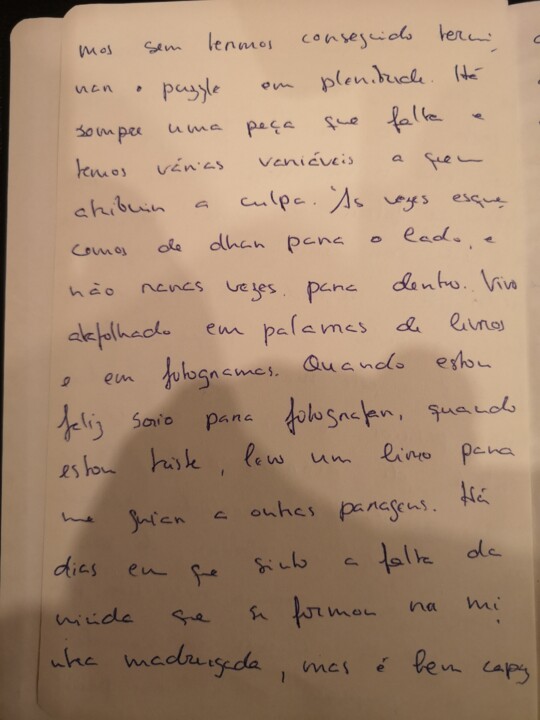 mos sem termos conseguido termi
nar o puzzle em plenitude. Há
sempre uma peça que falta e
temos várias variáveis a quem
atribuir a culpa. Às vezes esque
cemos de olhar para o lado, e
não raras vezes para dentro. Vivo
atafolhado em palavras de livros
e em fotogramas. Quando estou
feliz saio para fotografar, quando
estou triste, levo um livro para
me guiar a outras paragens. Há
dias em que sinto a falta da
que se formou na mi
nha madrugada, mas é bem capaz